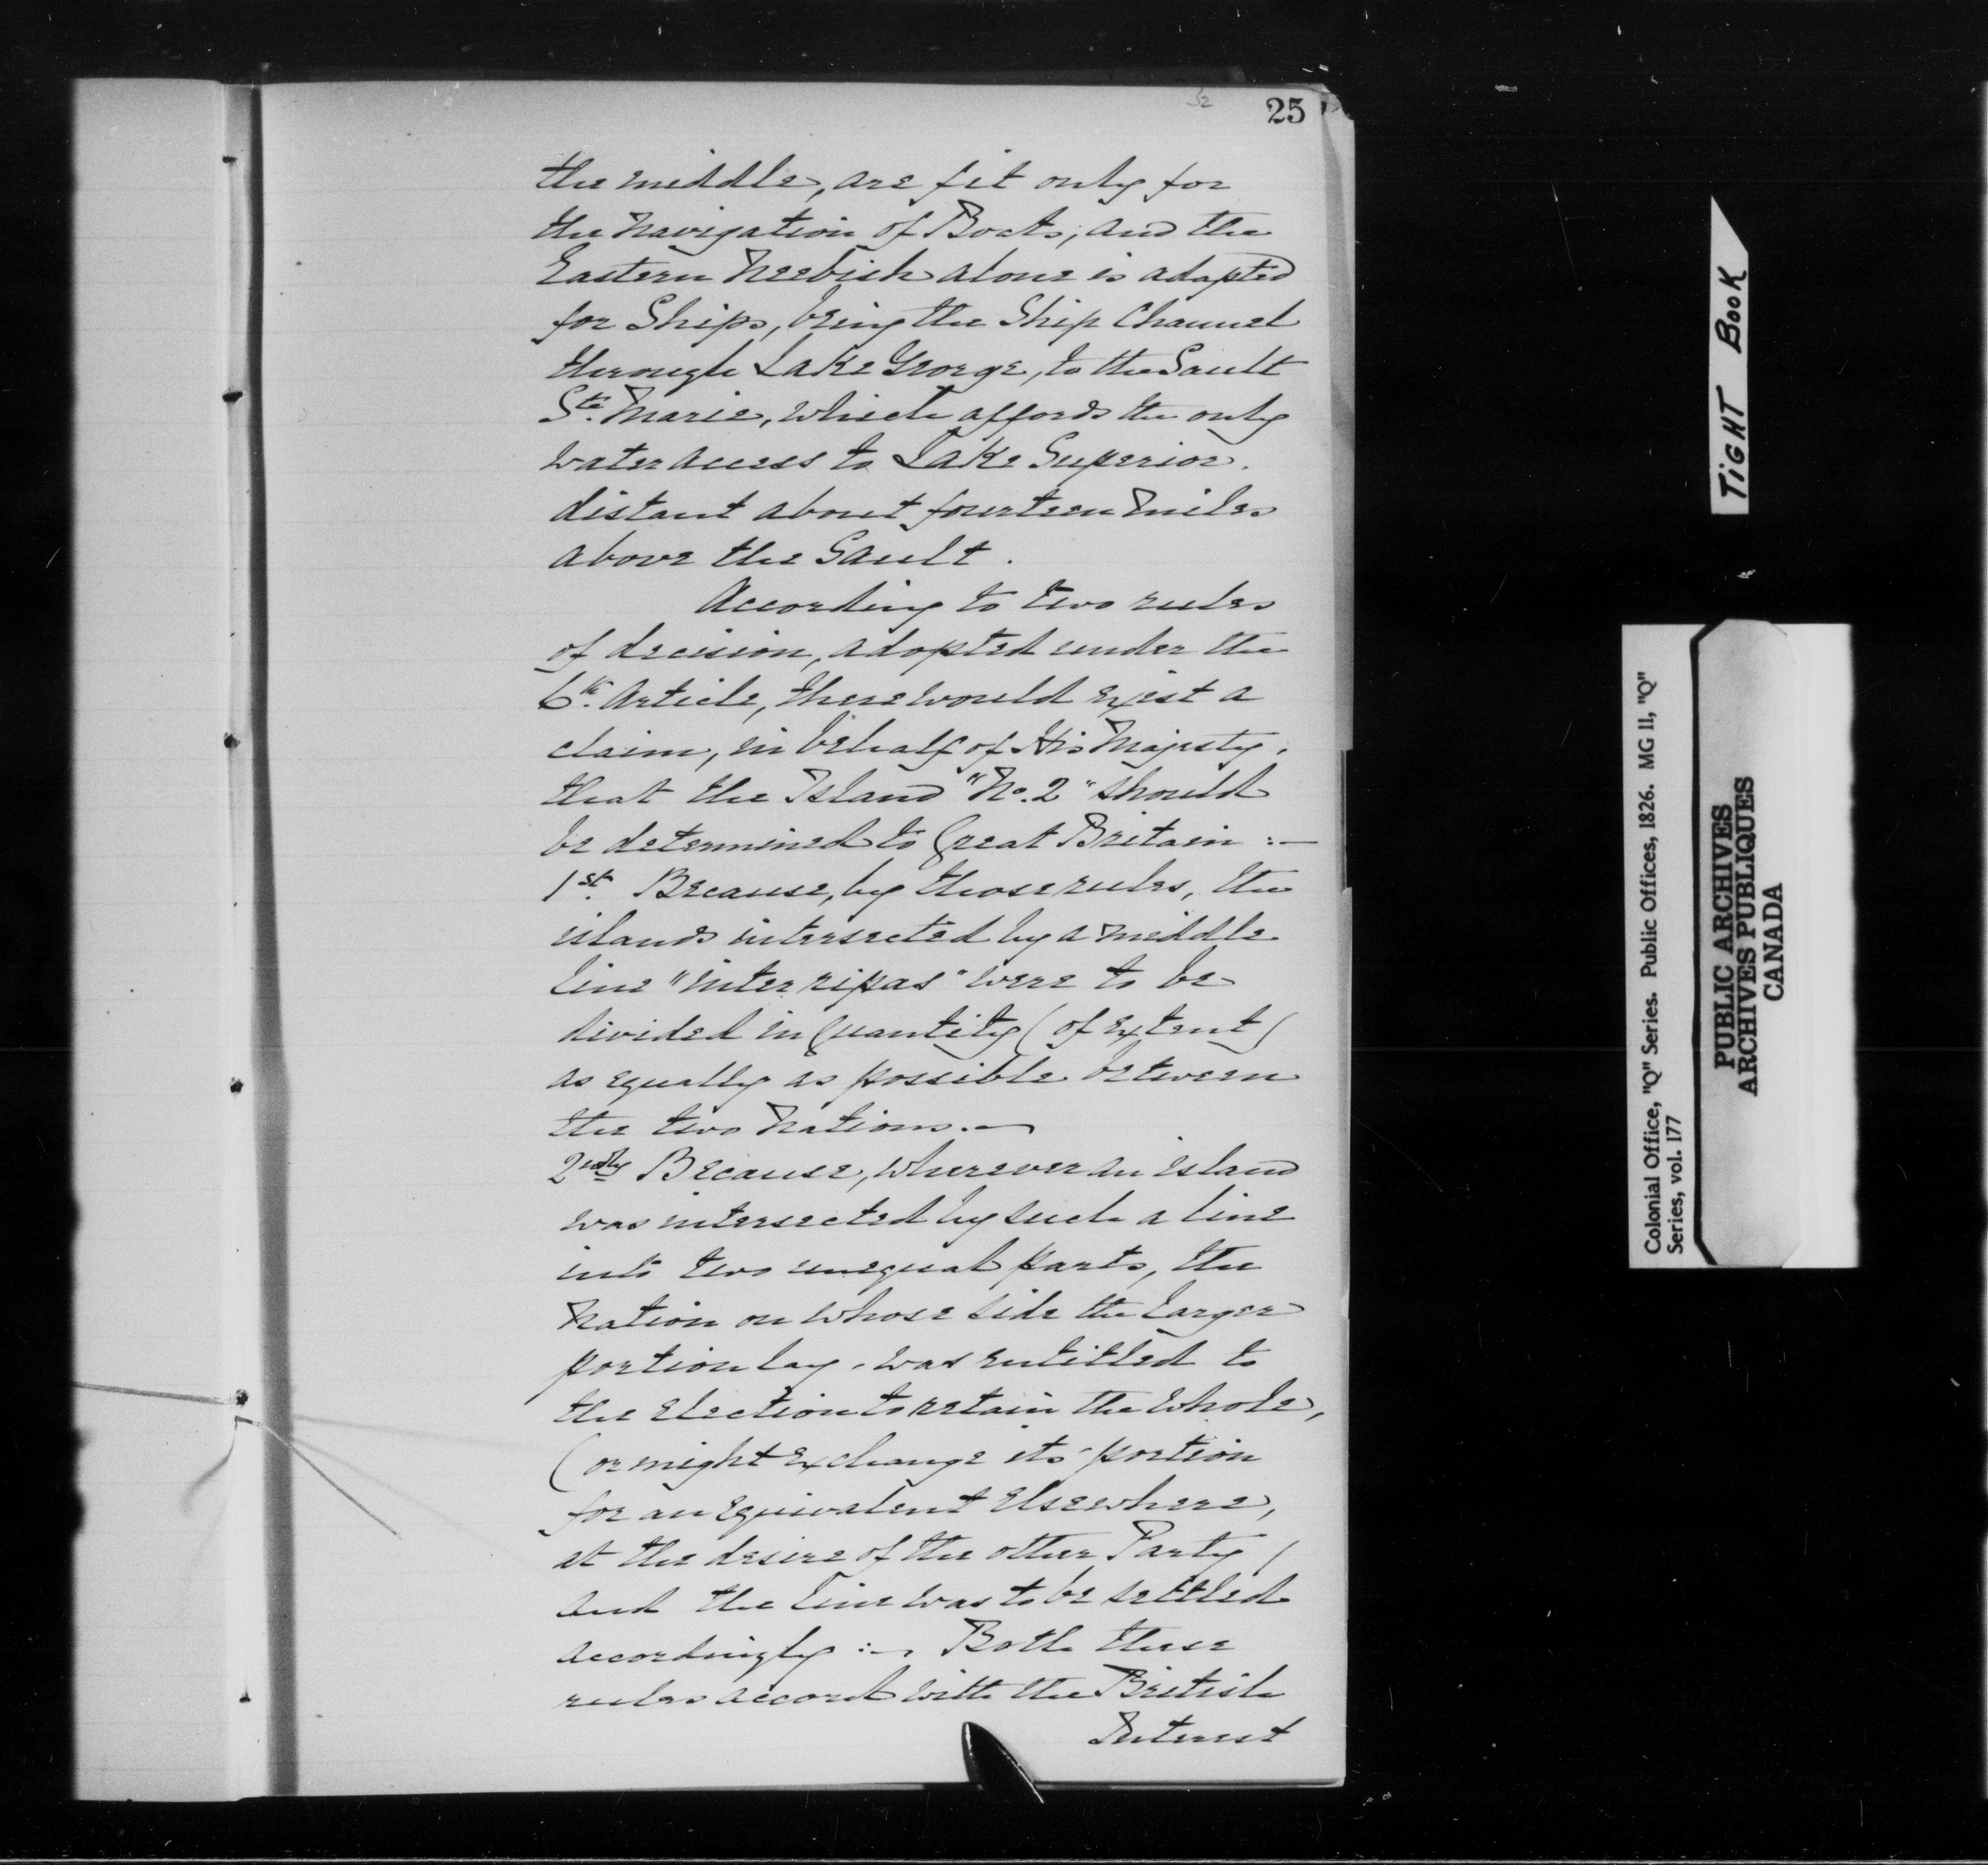 25
the middle, are fit only for
the Navigation of Boats; and the
Eastern Neebish alone is adapted
for Ships, being the Ship Channel
through Lake George, to the Sault
Ste. Marie, which affords the only
water access to Lake Superior.
distant about fourteen Miles
above the Sault.
According to two rules
of decision, adopted under the
6th. Article, there would exist a
claim, in behalf of His Majesty,
that the Island "No. 2" should
be determined to Great Britain :—
1st. Because, by those rules, the
islands intersected by a middle
line "inter ripas" were to be
divided in Quantity (of Extent)
as equally as possible between
the two Nations.—
2ndly Because, wherever an island
was intersected by such a line
into two unequal parts, the
Nation on whose side the larger
portion lay, was entitled to
the Election to retain the whole,
(or might exchange its portion
for an equivalent elsewhere,
at the desire of the other Party)
and the line was to be settled
accordingly :— Both these
rules accord with the British
Interest
TIGHT BOOK
Colonial Office, "Q" Series. Public Offices, 1826. MG 11, "Q"
Series, vol. 177
PUBLIC ARCHIVES
ARCHIVES PUBLIQUES
CANADA